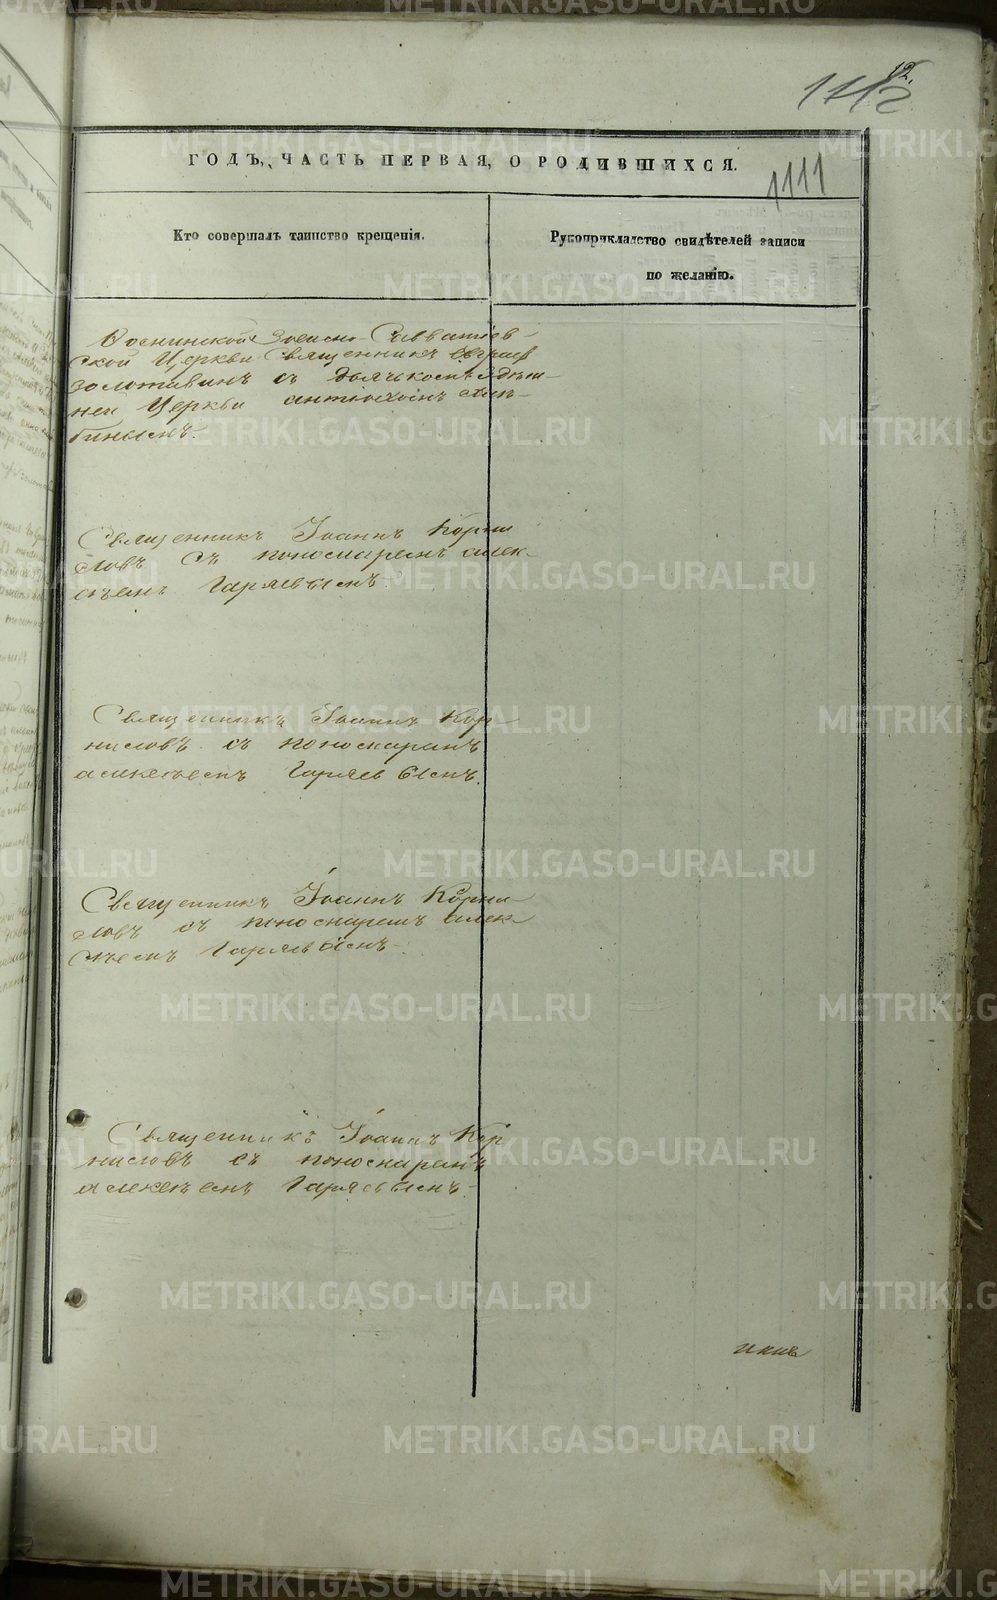 12.
1112
ГОДЪ, ЧАСТЬ ПЕРВАЯ, О РОДИВШИХСЯ.
1111
Кто совершалъ таинство крещенія.
Рукоприкладство свидѣтелей записи
по желанію.
Зосимо Савватіев-
ской Церкви Священникъ
Золотавинъ съ дьячькомъ
ней Церкви
Священникъ Іоаннъ Корни
ловъ съ пономаремъ Алек-
сѣемъ Гаряевымъ.
Священникъ Іоаннъ Кор-
ниловъ съ пономаремъ
Алексѣемъ Гаряевымъ.
Священникъ Іоаннъ Корни
ловъ съ пономаремъ Алек
сѣемъ Гаряевымъ.
Священникъ Іоаннъ Кор
ниловъ съ пономаремъ
Алексѣемъ Гаряевымъ.
METRIKI.GASO-URAL.RU